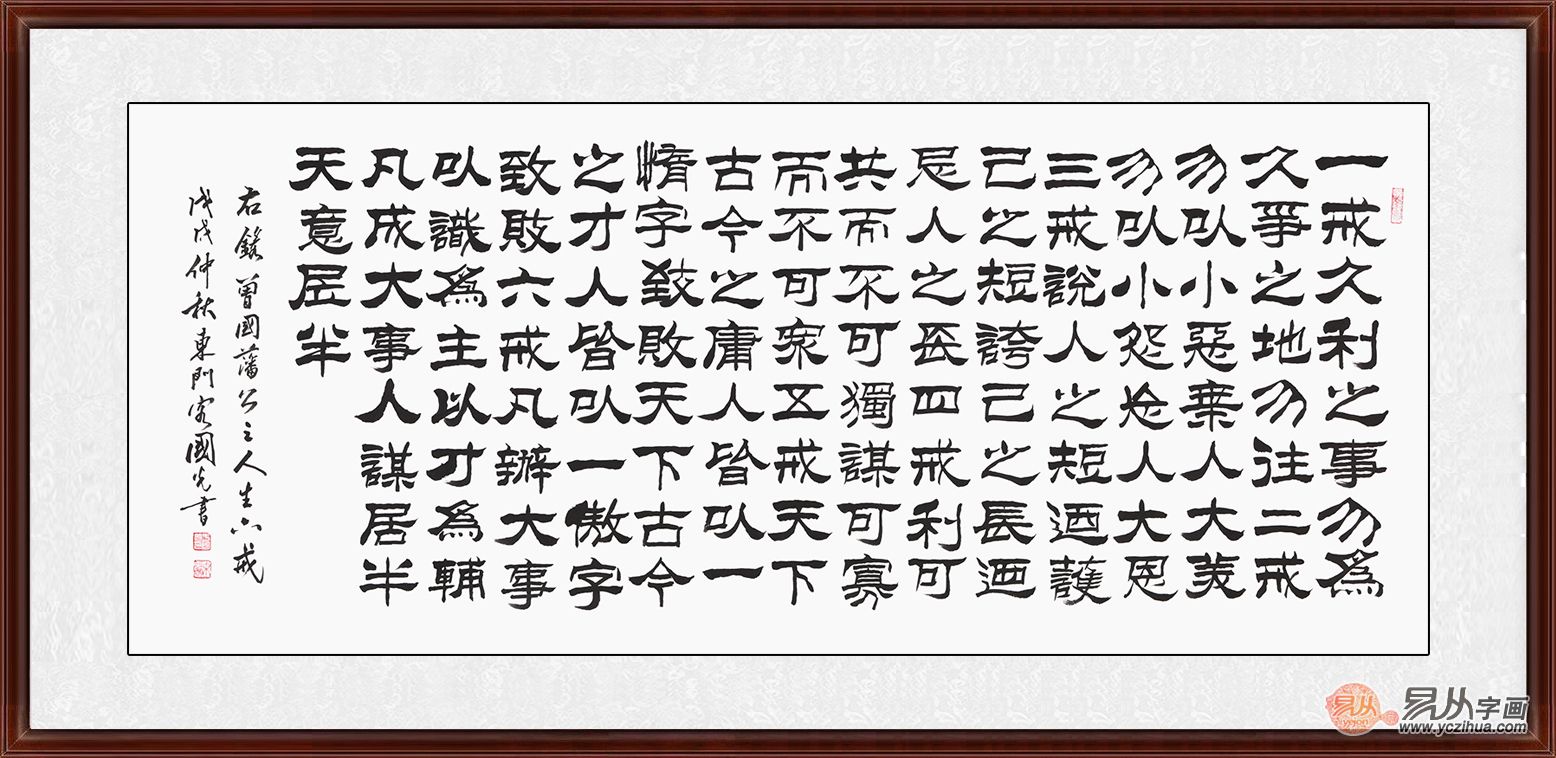 一戒久利之事勿爲
久爭之地勿往二戒
勿以小惡棄人大美
勿以小怨忘人大恩
三戒說人之短迺護
己之短誇己之長迺
忌人之長四戒利可
共而不可獨謀可寡
而不可眾五戒天下
古今之庸人皆以一
惰字致敗天下古今
之才人皆以一傲字
致敗六戒凡辦大事
以識爲主以才爲輔
凡成大事人謀居半
天意居半
右錄曾國藩公之人生六戒
戊戌仲秋東門客國先書
易从
yicon
易从字画
www.yczihua.com